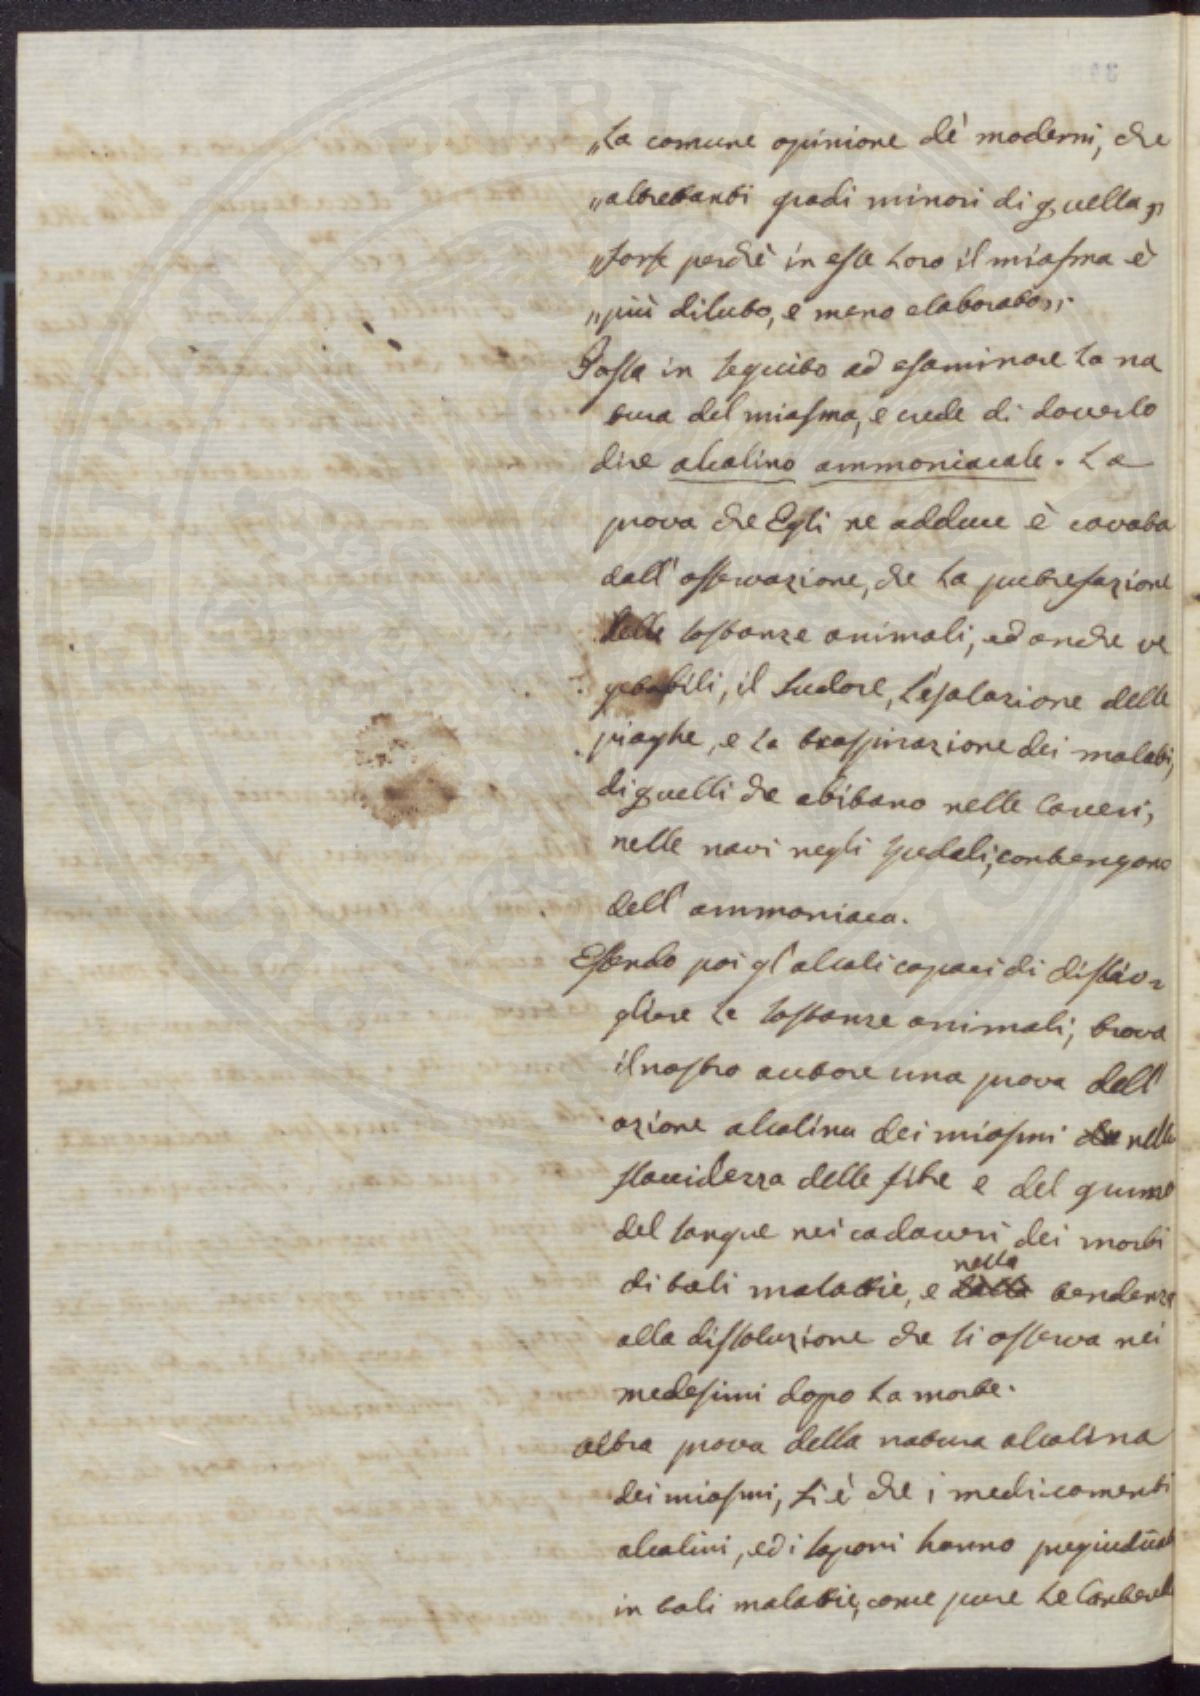 „La comune opinione de' moderni, che
„altretanti gradi minori di quella,„
„forse perchè in esse loro il miasma è
„più diluto, e meno elaborato„.
Passa in seguito ad esaminare la na
tura del miasma, e crede di doverlo
dire alcalino ammoniacale. La
prova che Egli ne adduce è cavata
dall'osservazione, che la putrefazione
delle sostanze animali, ed anche ve
getabili, il sudore, l'esalazione delle
piaghe, e la traspirazione dei malati,
di quelli che abitano nelle Carceri,
nelle navi negli spedali, contengono
dell'ammoniaca.
Essendo poi gl'alcali capaci di discio=
gliere le sostanze animali, trova
il nostro autore una prova dell'
azione alcalina dei miasmi nella
flaccidezza delle fibre e del grumo
del sangue nei cadaveri dei morti
di tali malattie, e nella tendenza
alla dissoluzione che si osserva nei
medesimi dopo la morte.
Altra prova della natura alcalina
dei miasmi, si è che i medicamenti
alcalini, ed i saponi hanno pregiudicato
in tali malattie, come pure le Cantarelle